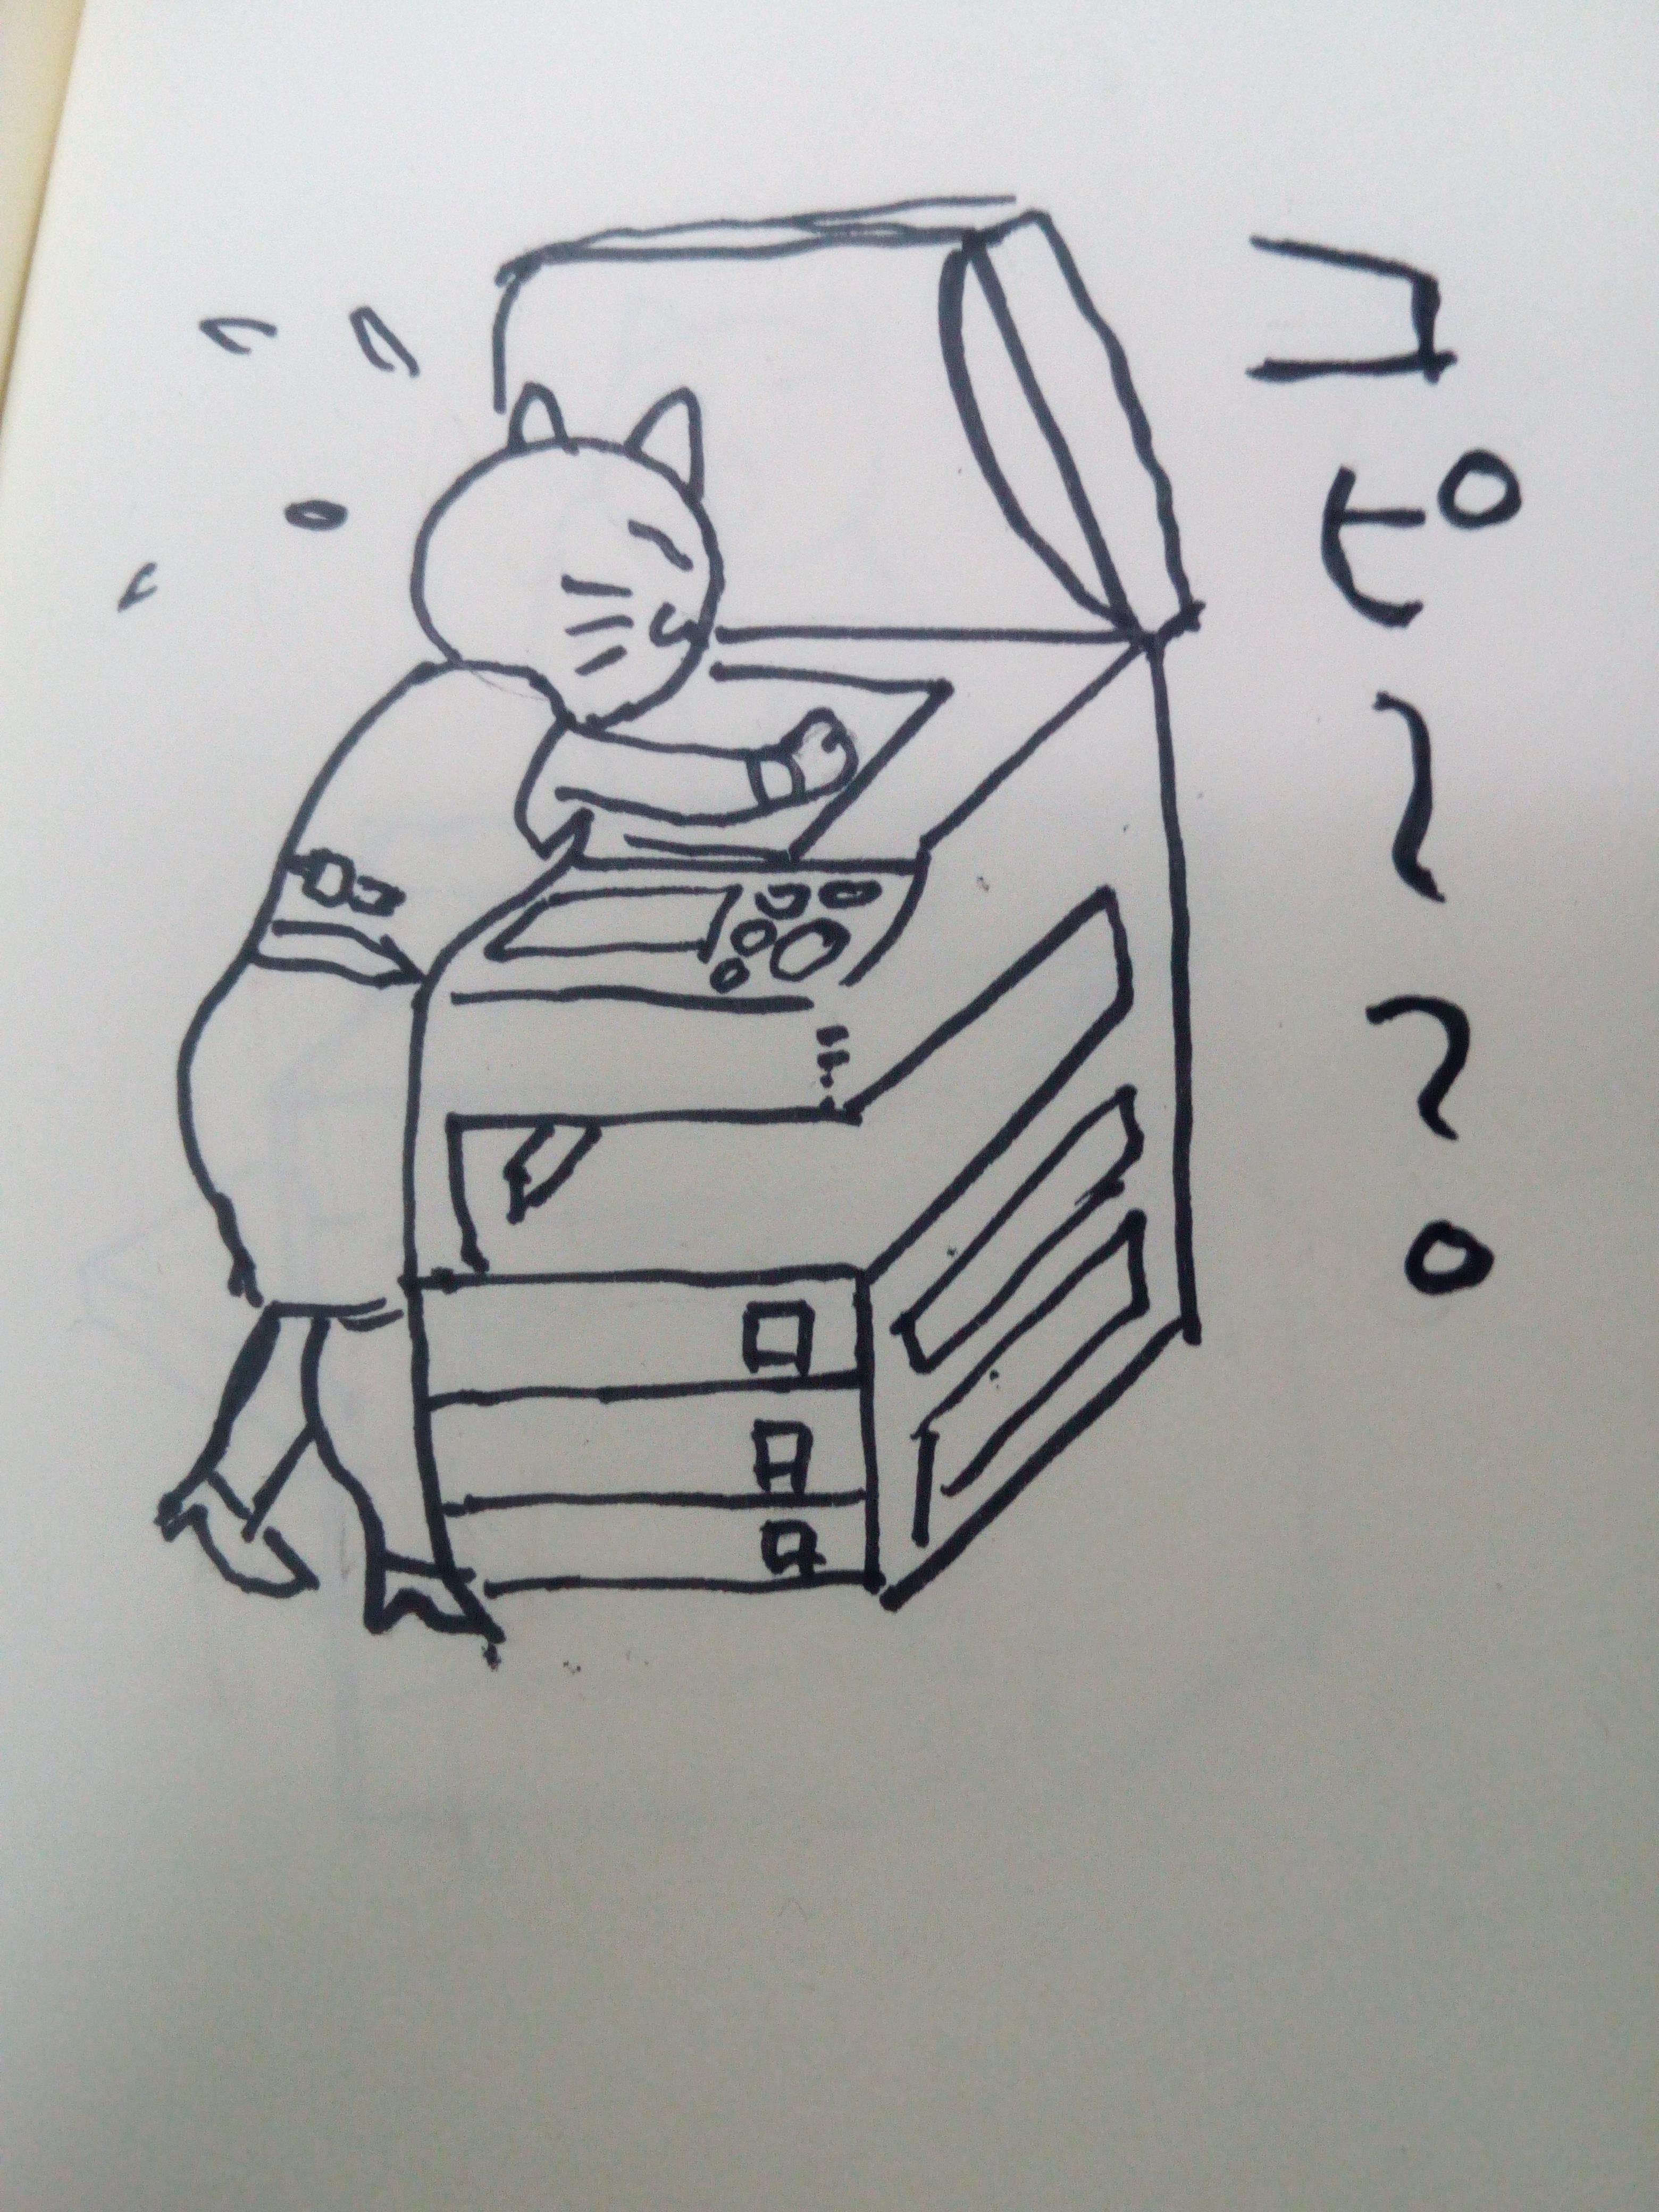 コピ〜〜。